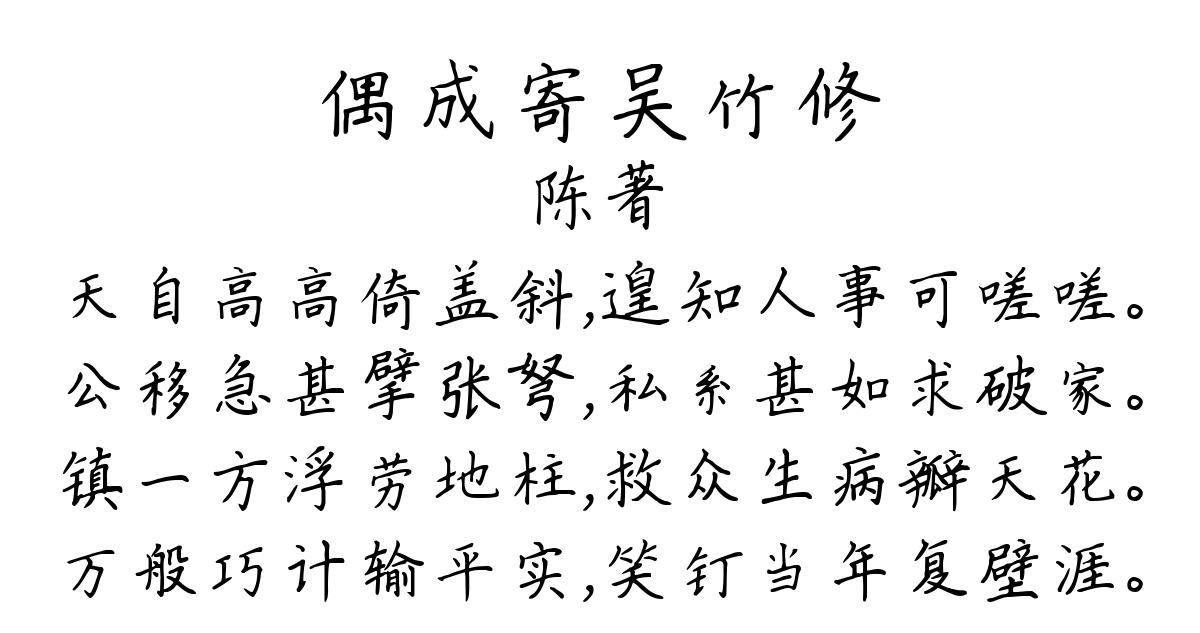 偶成寄吴竹修
陈著
天自高高倚盖斜,遑知人事可嗟嗟。
公移急甚擘张弩,私系甚如求破家。
镇一方浮劳地柱,救众生病瓣天花。
万般巧计输平实,笑钉当年复壁涯。